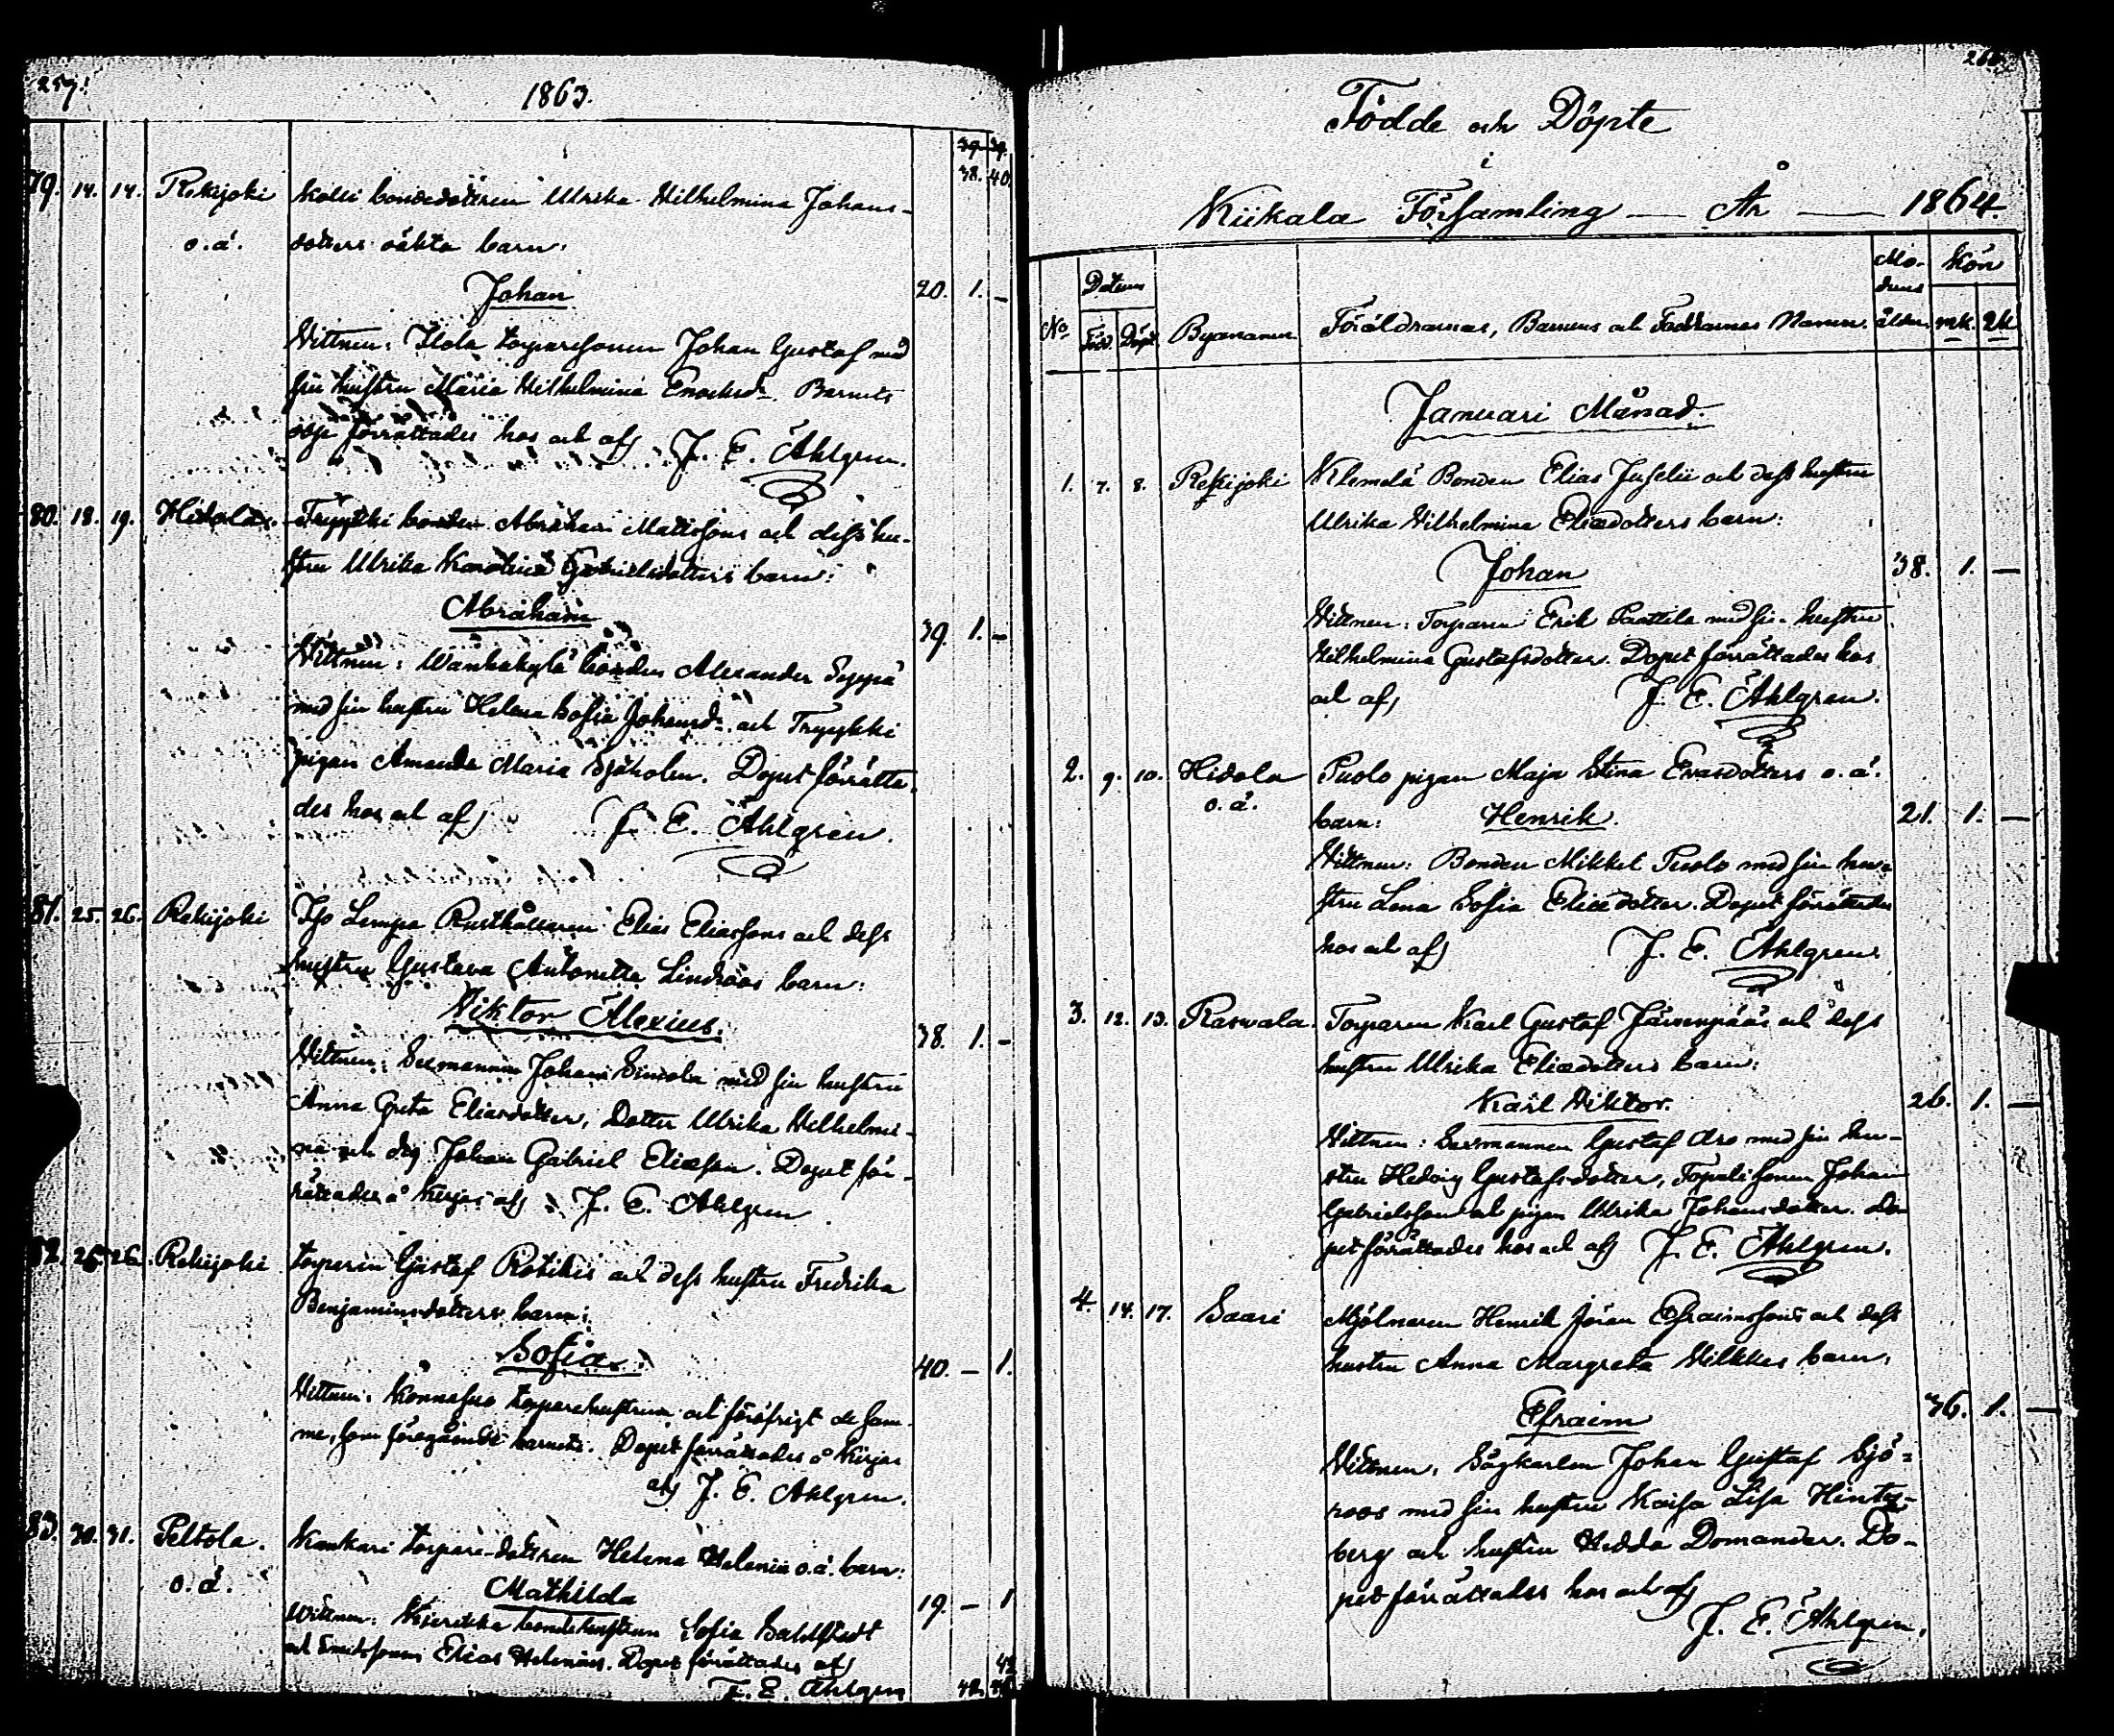 259.
1863.
39. 39.
38. 40.
79. 14. 14. Rekijoki Kolli bondedottren Ulrika Wilhelmina Johans-
o.ä. dotters oäkta barn:
Johan 20. 1. –
Wittnen: Ilola torparesonen Johan Gustaf med
sin hustru Maria Wilhelmina Enochsdr. Barnets
dop förrättades hos och af J. E. Åhlgren.
80. 18. 19. Hidola. Tryykki bonden Abraham Mattssons och dess hu-
stru Ulrika Karolina Gabrielsdotters barn:
Abraham 39. 1. –
Wittnen: Wanhakylä bonden Alexander Seppä
med sin hustru Helena Sofia Johansdr. och Tryykki
pigan Amanda Maria Sjöholm. Dopet förrätta-
des hos och af J. E. Åhlgren.
81. 25. 26. Rekijoki Iso Lempa Rusthållaren Elias Eliassons och dess
hustru Gustava Antonetta Lindroos barn:
Wiktor Alexius. 38. 1. –
Wittnen: Sexmannen Johan Simola med sin hustru
Anna Greta Eliasdotter, Dotter Ulrika Wilhelmi-
na och drg Johan Gabriel Eliasson. Dopet för-
rättades å Kirjas af J. E. Ahlgren
82. 25. 26. Rekijoki torparen Gustaf Rotikis och dess hustru Fredrika
Benjaminsdotters barn:
Sofia 40. – 1.
Wittnen: torparehustrun och föröfrigt de sam-
me, som föregående barnets. Dopet förrättades å Kirjas
af J. E. Ahlgren.
83. 30. 31. Peltola. Kankari torpare-dottren Helena Helenia o.ä. barn:
o.ä. Mathilda 19. – 1
Wittnen: bondehustrun Sofia Sahlstedt
och Elias Helenius. Dopet förrättades af
J. E. Ahlgren 42. 41
260.
Födde och Döpte
i
Kiikala Församling — År — 1864.
No Datum Född. Döpt. Byanamn Föräldrarnas, Barnens och Faddrarnes Namn. Modrens ålder. Kön mk. qk.
Januari Månad.
1. 7. 8. Rekijoki Klemelä Bonden Elias Juselii och dess hustru
Ulrika Wilhelmina Eliædotters barn:
Johan 38. 1. —
Wittnen: Torparen Erik Paattila med sin hustru
Wilhelmina Gustafsdotter. Dopet förrättades hos
och af J. E. Åhlgren.
2. 9. 10. Hidola Puolo pigan Maja Stina Evasdotters o.ä.
o.ä. barn: Henrik. 21. 1. —
Wittnen: Bonden Mikkel Puolo med sin hu-
stru Lena Sofia Eliædotter. Dopet förrättades
hos och af J. E. Åhlgren.
3. 12. 13. Rasvala. Torparen Karl Gustaf Järvenpääs och dess
hustru Ulrika Eliædotters barn:
Karl Wiktor. 26. 1. —
Wittnen: Sexmannen Gustaf Aro med sin hu-
stru Hedvig Gustafsdotter, sonen Johan
Gabrielsson och pigan Ulrika Johansdotter. Do-
pet förrättades hos och af J. E. Åhlgren.
4. 14. 17. Saari Mjölnaren Henrik Jöran Efraimssons och dess
hustru Anna Margreta Wilkkes barn:
Efraim 36. 1. —
Wittnen: Sågkarlen Johan Gustaf Sjö-
roos med sin hustru Kaisa Lisa Hintz-
berg och hustru Hedda Domander. Do-
pet förrättades hos och af
J. E. Åhlgren.